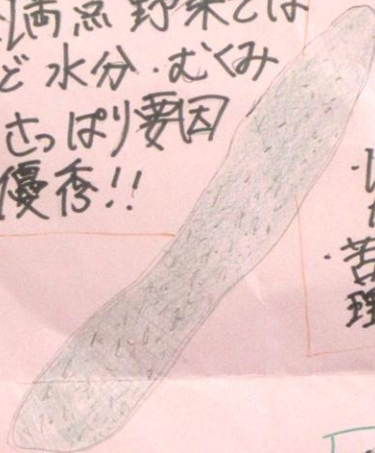 満点 野菜では
ど 水分・むくみ
さっぱり要因
優秀!!
・苦
理